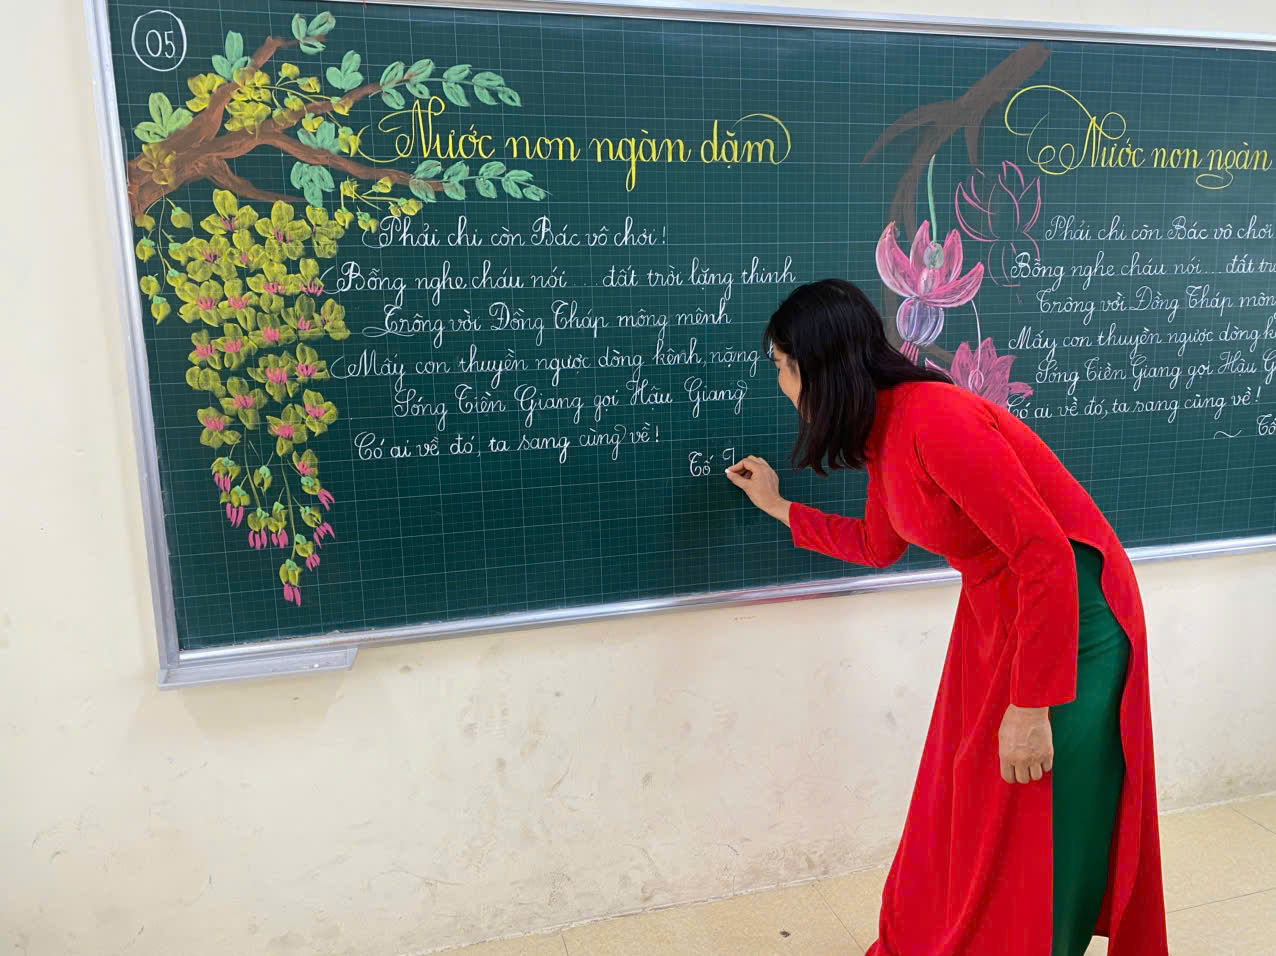 05
Nước non ngàn dặm
Phải chi còn Bác vô chơi!
Bỗng nghe cháu nói... đất trời lặng thinh
Trông vời Đồng Tháp mông mênh
Mấy con thuyền ngược dòng kênh, nặng
Sóng Tiền Giang gọi Hậu Giang
Có ai về đó, ta sang cùng về!
Tố
Nước non ngàn
Phải chi còn Bác vô chơi
Bỗng nghe cháu nói... đất
Trông vời Đồng Tháp
Mấy con thuyền ngược dòng
Sóng Tiền Giang gọi Hậu
Có ai về đó, ta sang cùng về!